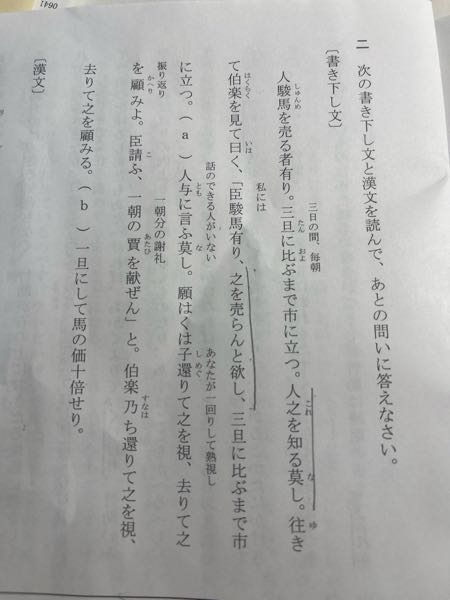 二　次の書き下し文と漢文を読んで、あとの問いに答えなさい。
〔書き下し文〕
しゅんめ　三日の間、毎朝　たん　およ　これ　な　ゆ
人駿馬を売る者有り。三旦に比ぶまで市に立つ。人之を知る莫し。往き
はくらく　いは　私には
て伯楽を見て曰く、「臣駿馬有り、之を売らんと欲し、三旦に比ぶまで市
話のできる人がいない　とも　な　あなたが一回りして熟視し　しめぐ
に立つ。（ａ）人与に言ふ莫し。願はくは子還りて之を視、去りて之
振り返り　かへり　こ　一朝分の謝礼　あたひ　すなは
を顧みよ。臣請ふ、一朝の賈を献ぜん」と。伯楽乃ち還りて之を視、
去りて之を顧みる。（ｂ）一旦にして馬の価十倍せり。
〔漢文〕